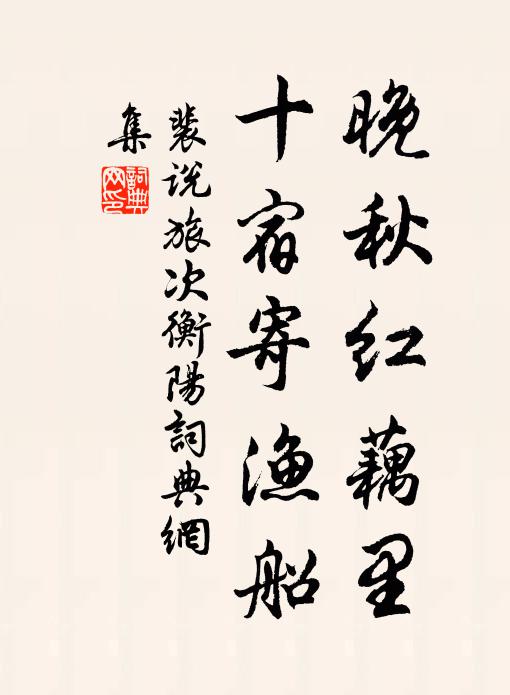 晚秋红藕里
十宿寄渔船
裴说旅次衡陽詞典網
集
詞典网印